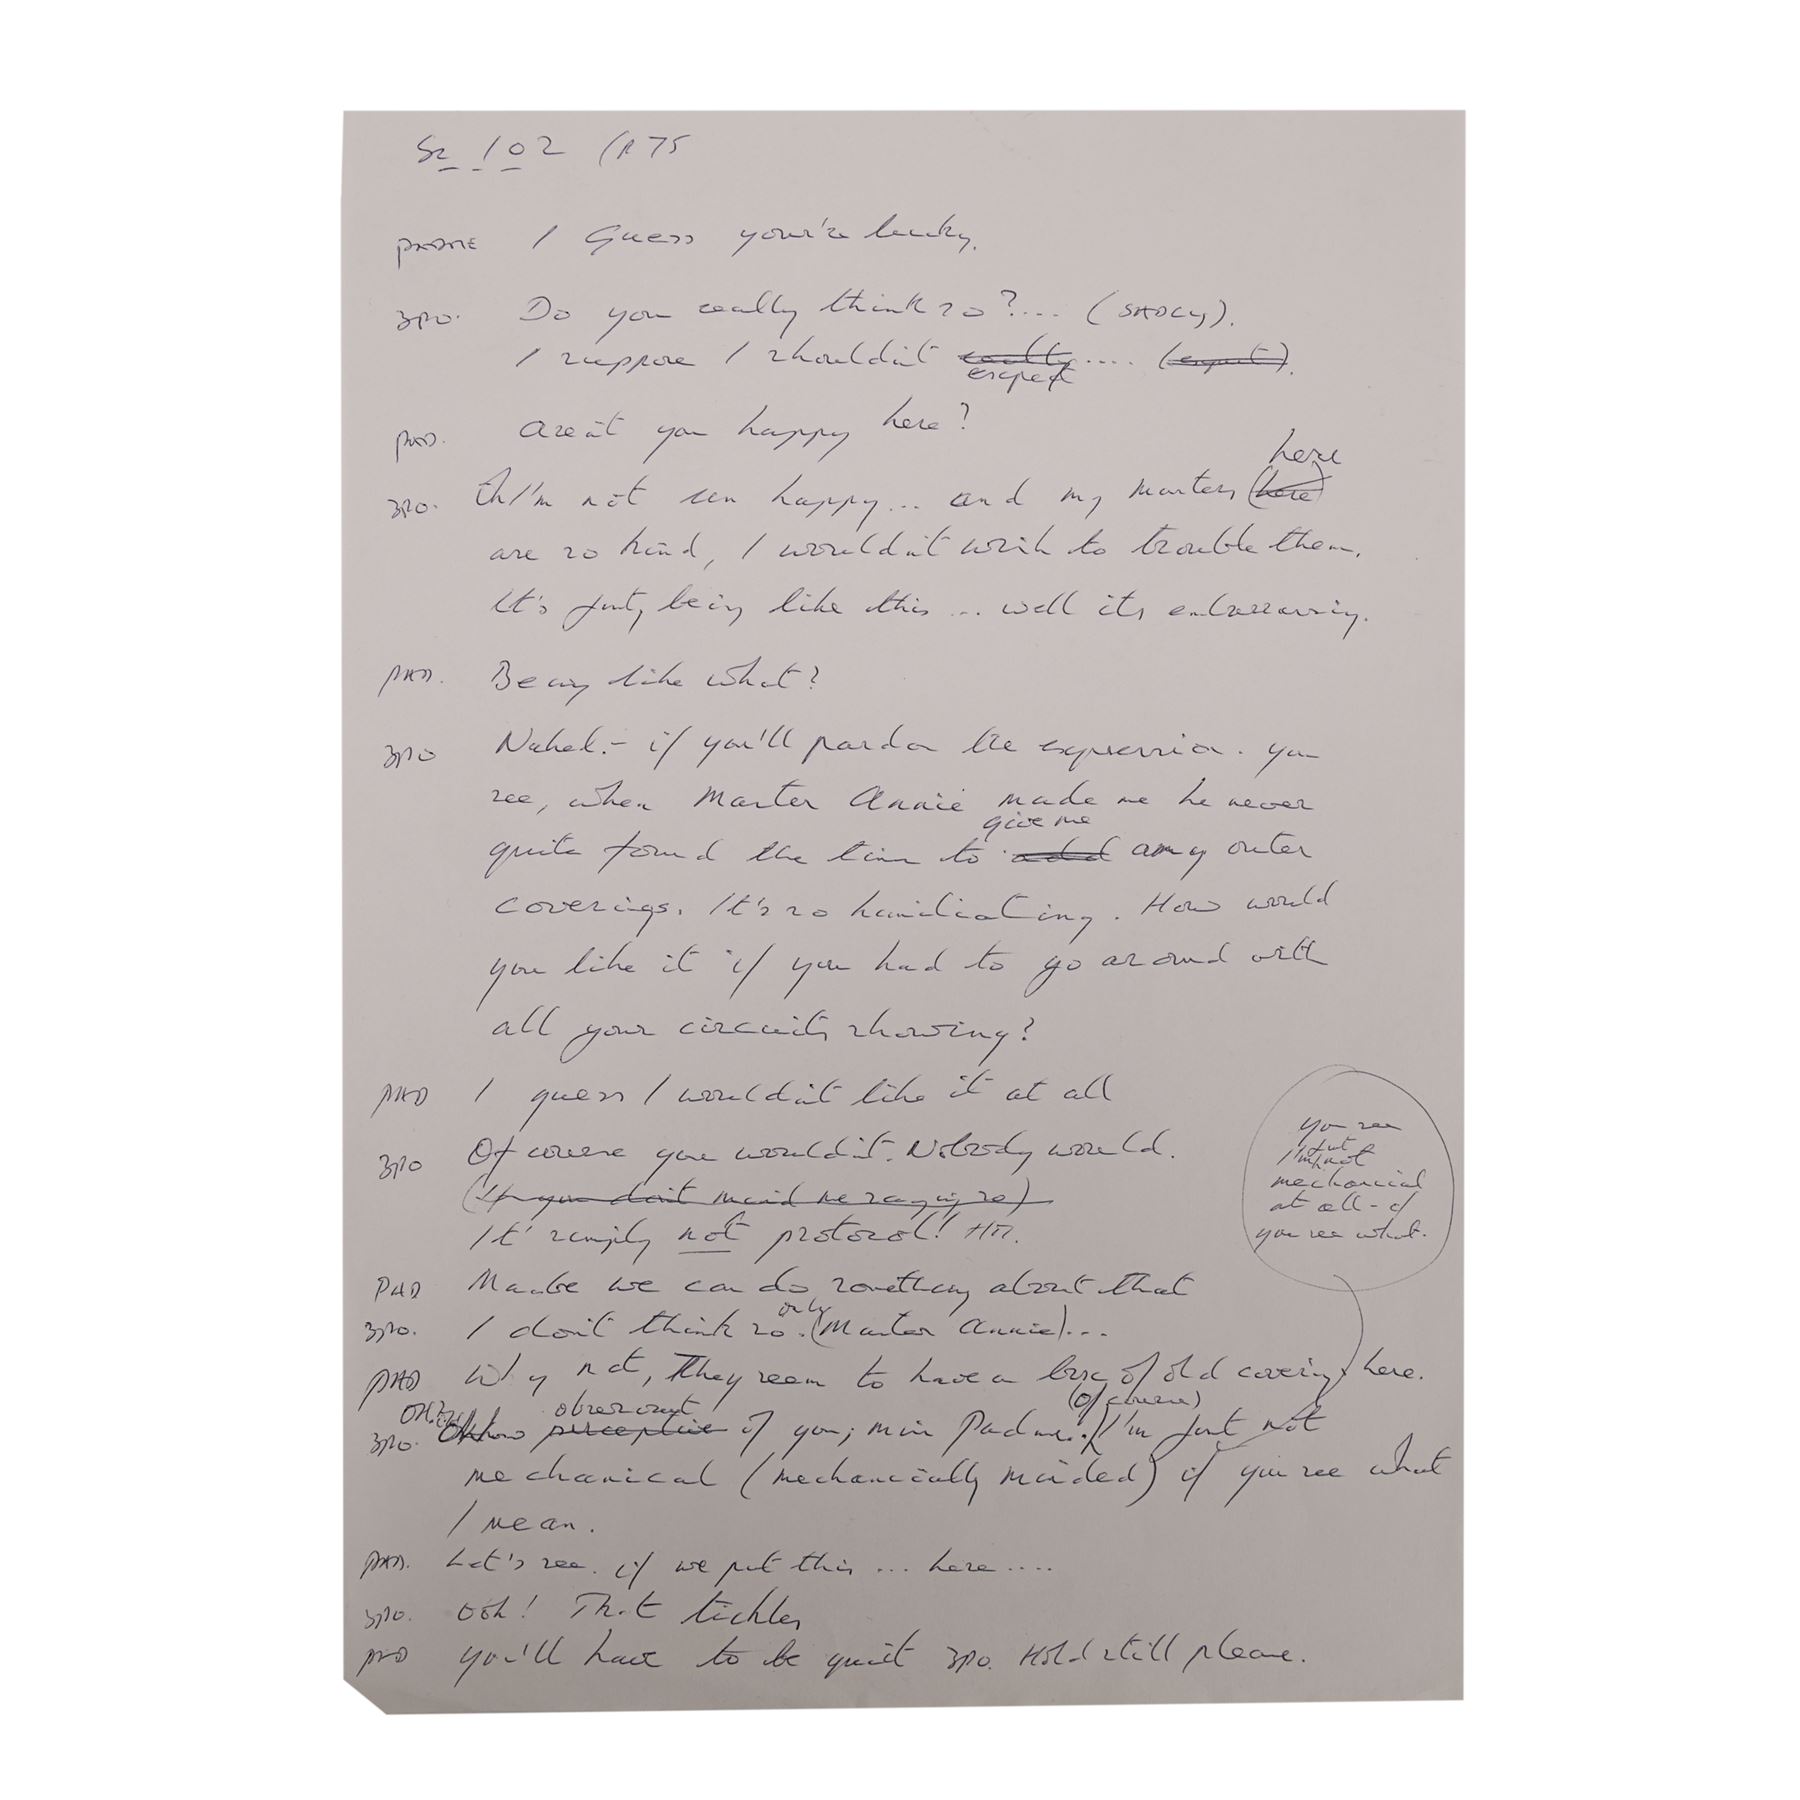 Sc 102 (P 75
PADME I Guess you're lucky.
3PO. Do you really think so?.... (SADLY).
I suppose I shouldn't really .... (expect).
expect
PAD. Aren't you happy here?
here
3PO. I'm not un happy... and my masters (here)
are so kind, I wouldn't wish to trouble them.
It's just, being like this ... well its embarrassing.
PAD. Being like what?
3PO Naked. - if you'll pardon the expression. you
see, when Master Annie made me he never
give me
quite found the time to add any outer
coverings. It's so humiliating. How would
you like it if you had to go around with
all your circuits showing?
PAD I guess I wouldn't like it at all
3PO Of course you wouldn't. Nobody would.
(If you don't mind me saying so)
It' simply not protocol! HM.
you see
just
I'm not
mechanical
at all - if
you see what.
PAD Maybe we can do something about that
only
3PO. I don't think so. (Master Annie)...
PAD Why not, They seem to have a box of old coverings here.
observant (Of course)
3PO. how perceptive of you, miss Padme. I'm just not
mechanical (mechanically minded) if you see what
I mean.
PAD. Let's see. if we put this ... here ....
3PO. Ooh! That tickles
PAD you'll have to be quiet 3PO. Hold still please.